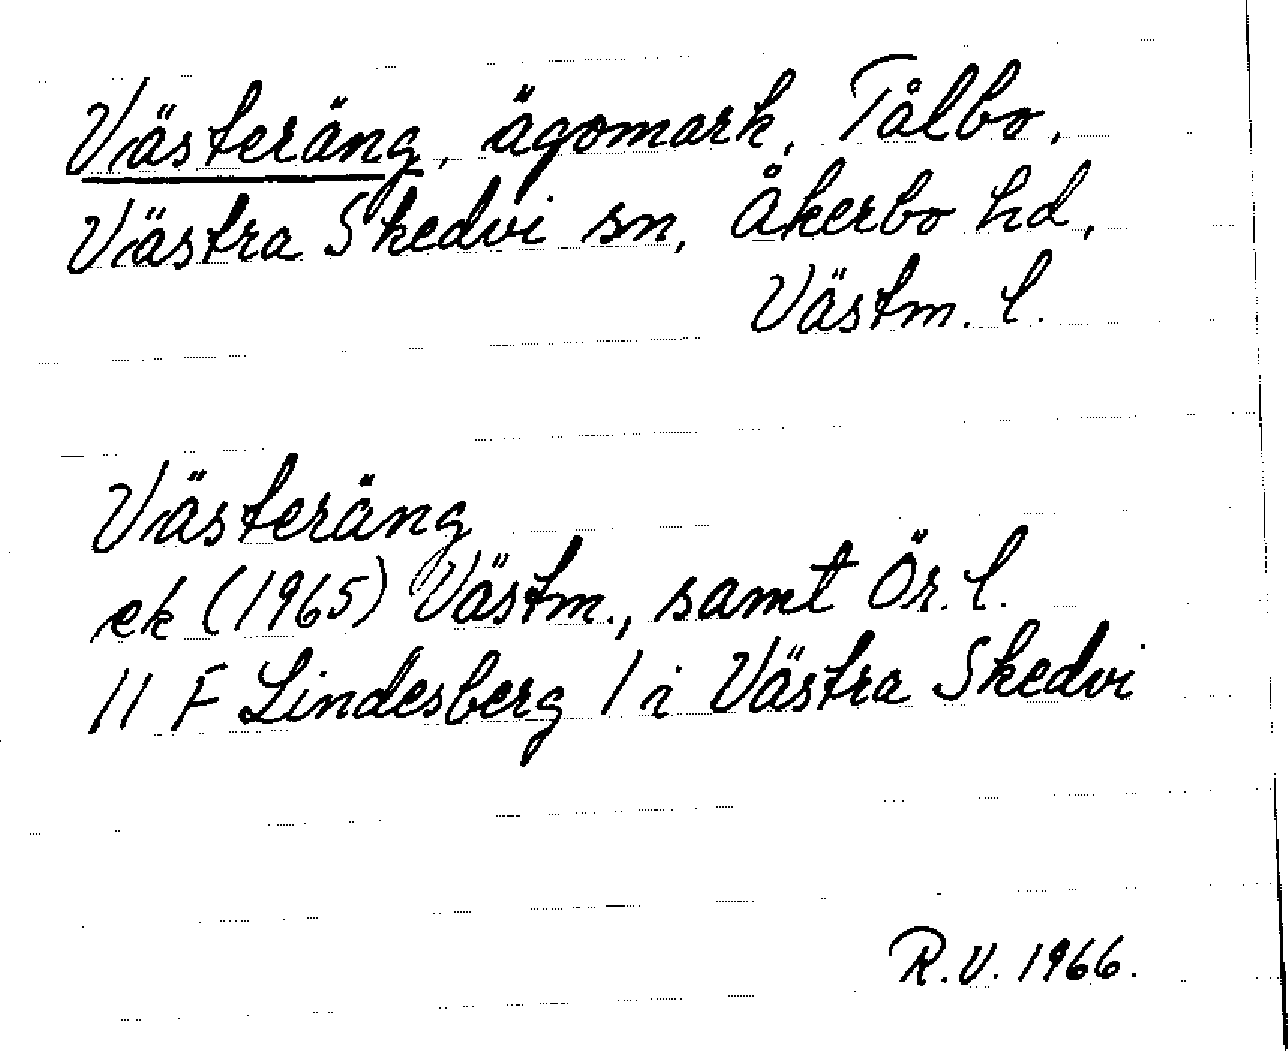 Västeräng, ägomark, Tålbo,
Västra Skedvi sn, Åkerbo hd,
Västm. l.
Västeräng
ek (1965) Västm., samt Ör. l.
11 F Lindesberg 1 i Västra Skedvi
R.V. 1966.